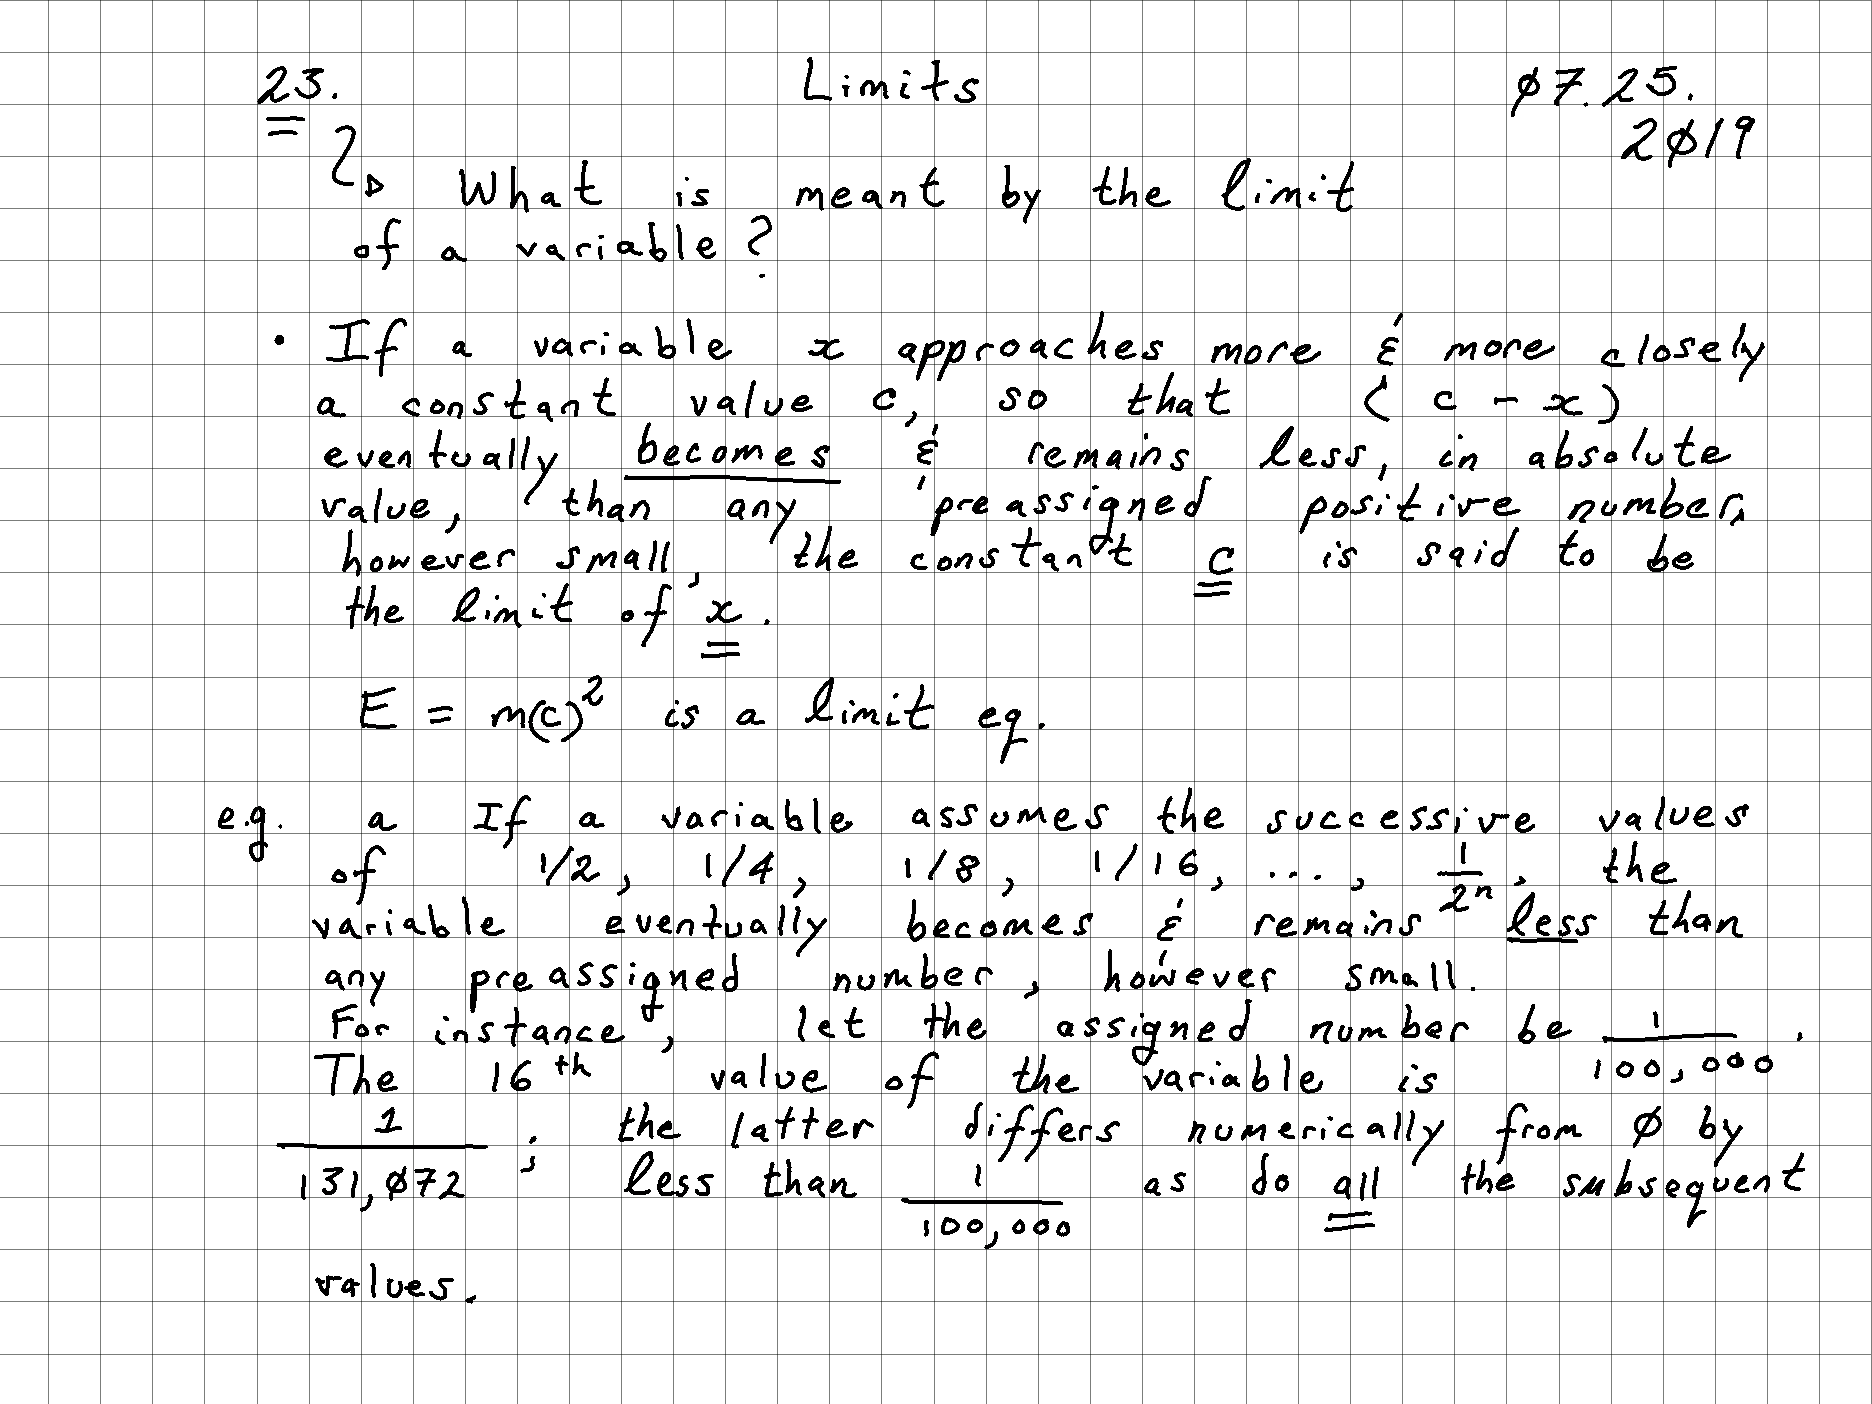 23. Limits ø7.25.
2ø19
What is meant by the limit
of a variable?
• If a variable x approaches more & more closely
a constant value c, so that (c - x)
eventually becomes & remains less, in absolute
value, than any preassigned positive number,
however small, the constant c is said to be
the limit of x.
E = m(c)² is a limit eq.
e.g. a If a variable assumes the successive values
of 1/2, 1/4, 1/8, 1/16, ..., 1/2ⁿ, the
variable eventually becomes & remains less than
any preassigned number, however small.
For instance, let the assigned number be 1/100,000.
The 16th value of the variable is
1/131,ø72; the latter differs numerically from ø by
less than 1/100,000 as do all the subsequent
values.